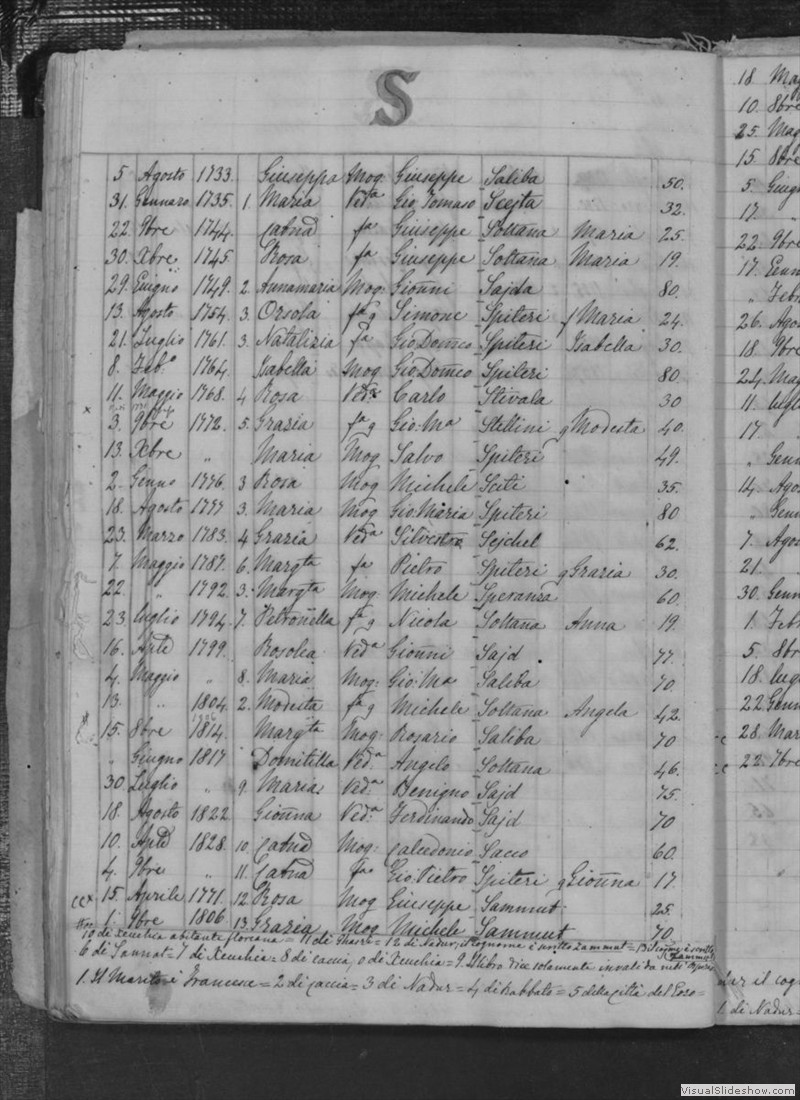 S
5. Agosto 1733. Giuseppa Mog: Giuseppe Saliba 50.
31. Gennaro 1735. 1. Maria Ved:a Gio Tomaso Scejta 32.
22. 9bre 1744. Catna fa Giuseppe Soltana Maria 25
30. Xbre 1745. Rosa fa Giuseppe Soltana Maria 19.
29. Giugno 1749. 2. Annamaria Mog: Gionni Sajda 80.
13. Agosto 1754. 3. Orsola fa g Simone Spiteri f Maria 24.
21. Luglio 1761. 3. Natalizia fa Gio Domco Spiteri Isabella 30.
8. Feb.o 1764. Isabella Mog Gio Domco Spiteri 80
11. Maggio 1768. 4 Rosa Ved:a Carlo Stivala 30
x 3. 9bre 1772. 5. Grazia fa g Gio: Ma Stellini g Modesta 40.
13. Xbre " Maria Mog Salvo Spiteri 49.
2. Genno 1776. 3 Rosa Mog Michele Sciti 35.
18. Agosto 1777 3. Maria Mog Gio Maria Spiteri 80
23. Marzo 1783. 4 Grazia Ved:a Silvestro Sejchel 62.
7. Maggio 1787. 6. Margta fa Pietro Spiteri g Grazia 30.
22. " 1792. 3. Margta Mog: Michele Speranza 60.
23. Luglio 1794. 7. Petronella fa g Nicola Soltana Anna 19.
16. Aple 1799. Rosolea Ved:a Gionni Sajd 77.
4. Maggio " 8. Maria Mog: Gio: Ma Saliba 70
13. " 1804. 2. Modesta fa g Michele Soltana Angela 42.
15. 8bre 1814. Margta Mog: Rosario Saliba 70
" Giugno 1817 Domitilla Ved:a Angelo Soltana 46.
30. Luglio " 9. Maria Ved:a Benigno Sajd 75.
18. Agosto 1822. Gionna Ved:a Ferdinando Sajd 70
10. Aple 1828. 10. Catna Mog: Calcedonio Sacco 60.
4. 9bre " 11. Catna fa Gio: Pietro Spiteri g Gionna 17.
ccx 15. Aprile 1771. 12. Rosa Mog Giuseppe Sammut 25.
1. 9bre 1806. 13. Grazia Mog Michele Sammut 70
10 di Xeuchia abitante Floreana = 11 di = 12 di Nadur, il cognome è scritto Zammut = 13 il cogme è scritto Zammut
6 di Sannat = 7 di Xeuchia = 8 di Caccia, 0 di Xeuchia = 9. Il libro dice solamente
1. Il Marito è Francese = 2 di Caccia = 3 di Nadur = 4 di Rabbato = 5 della Città del Gozo =
18
10. 8bre
25.
15 8bre
5.
17. "
22. 9bre
17.
"
26.
18. 9bre
24.
11
17
"
14.
"
7.
21. "
30.
1.
5. 8bre
18
22
28.
22.
VisualSlideshow.com